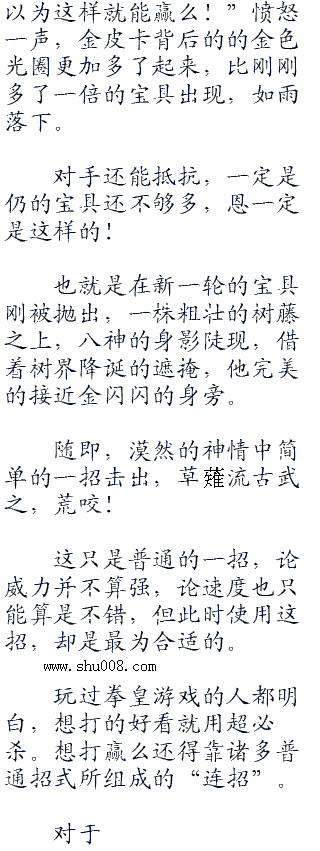 以为这样就能赢么！”愤怒
一声，金皮卡背后的的金色
光圈更加多了起来，比刚刚
多了一倍的宝具出现，如雨
落下。
对手还能抵抗，一定是
仍的宝具还不够多，恩一定
是这样的！
也就是在新一轮的宝具
刚被抛出，一株粗壮的树藤
之上，八神的身影陡现，借
着树界降诞的遮掩，他完美
的接近金闪闪的身旁。
随即，漠然的神情中简
单的一招击出，草薙流古武
之，荒咬！
这只是普通的一招，论
威力并不算强，论速度也只
能算是不错，但此时使用这
招，却是最为合适的。
www.shu008.com
玩过拳皇游戏的人都明
白，想打的好看就用超必
杀。想打赢么还得靠诸多普
通招式所组成的“连招”。
对于